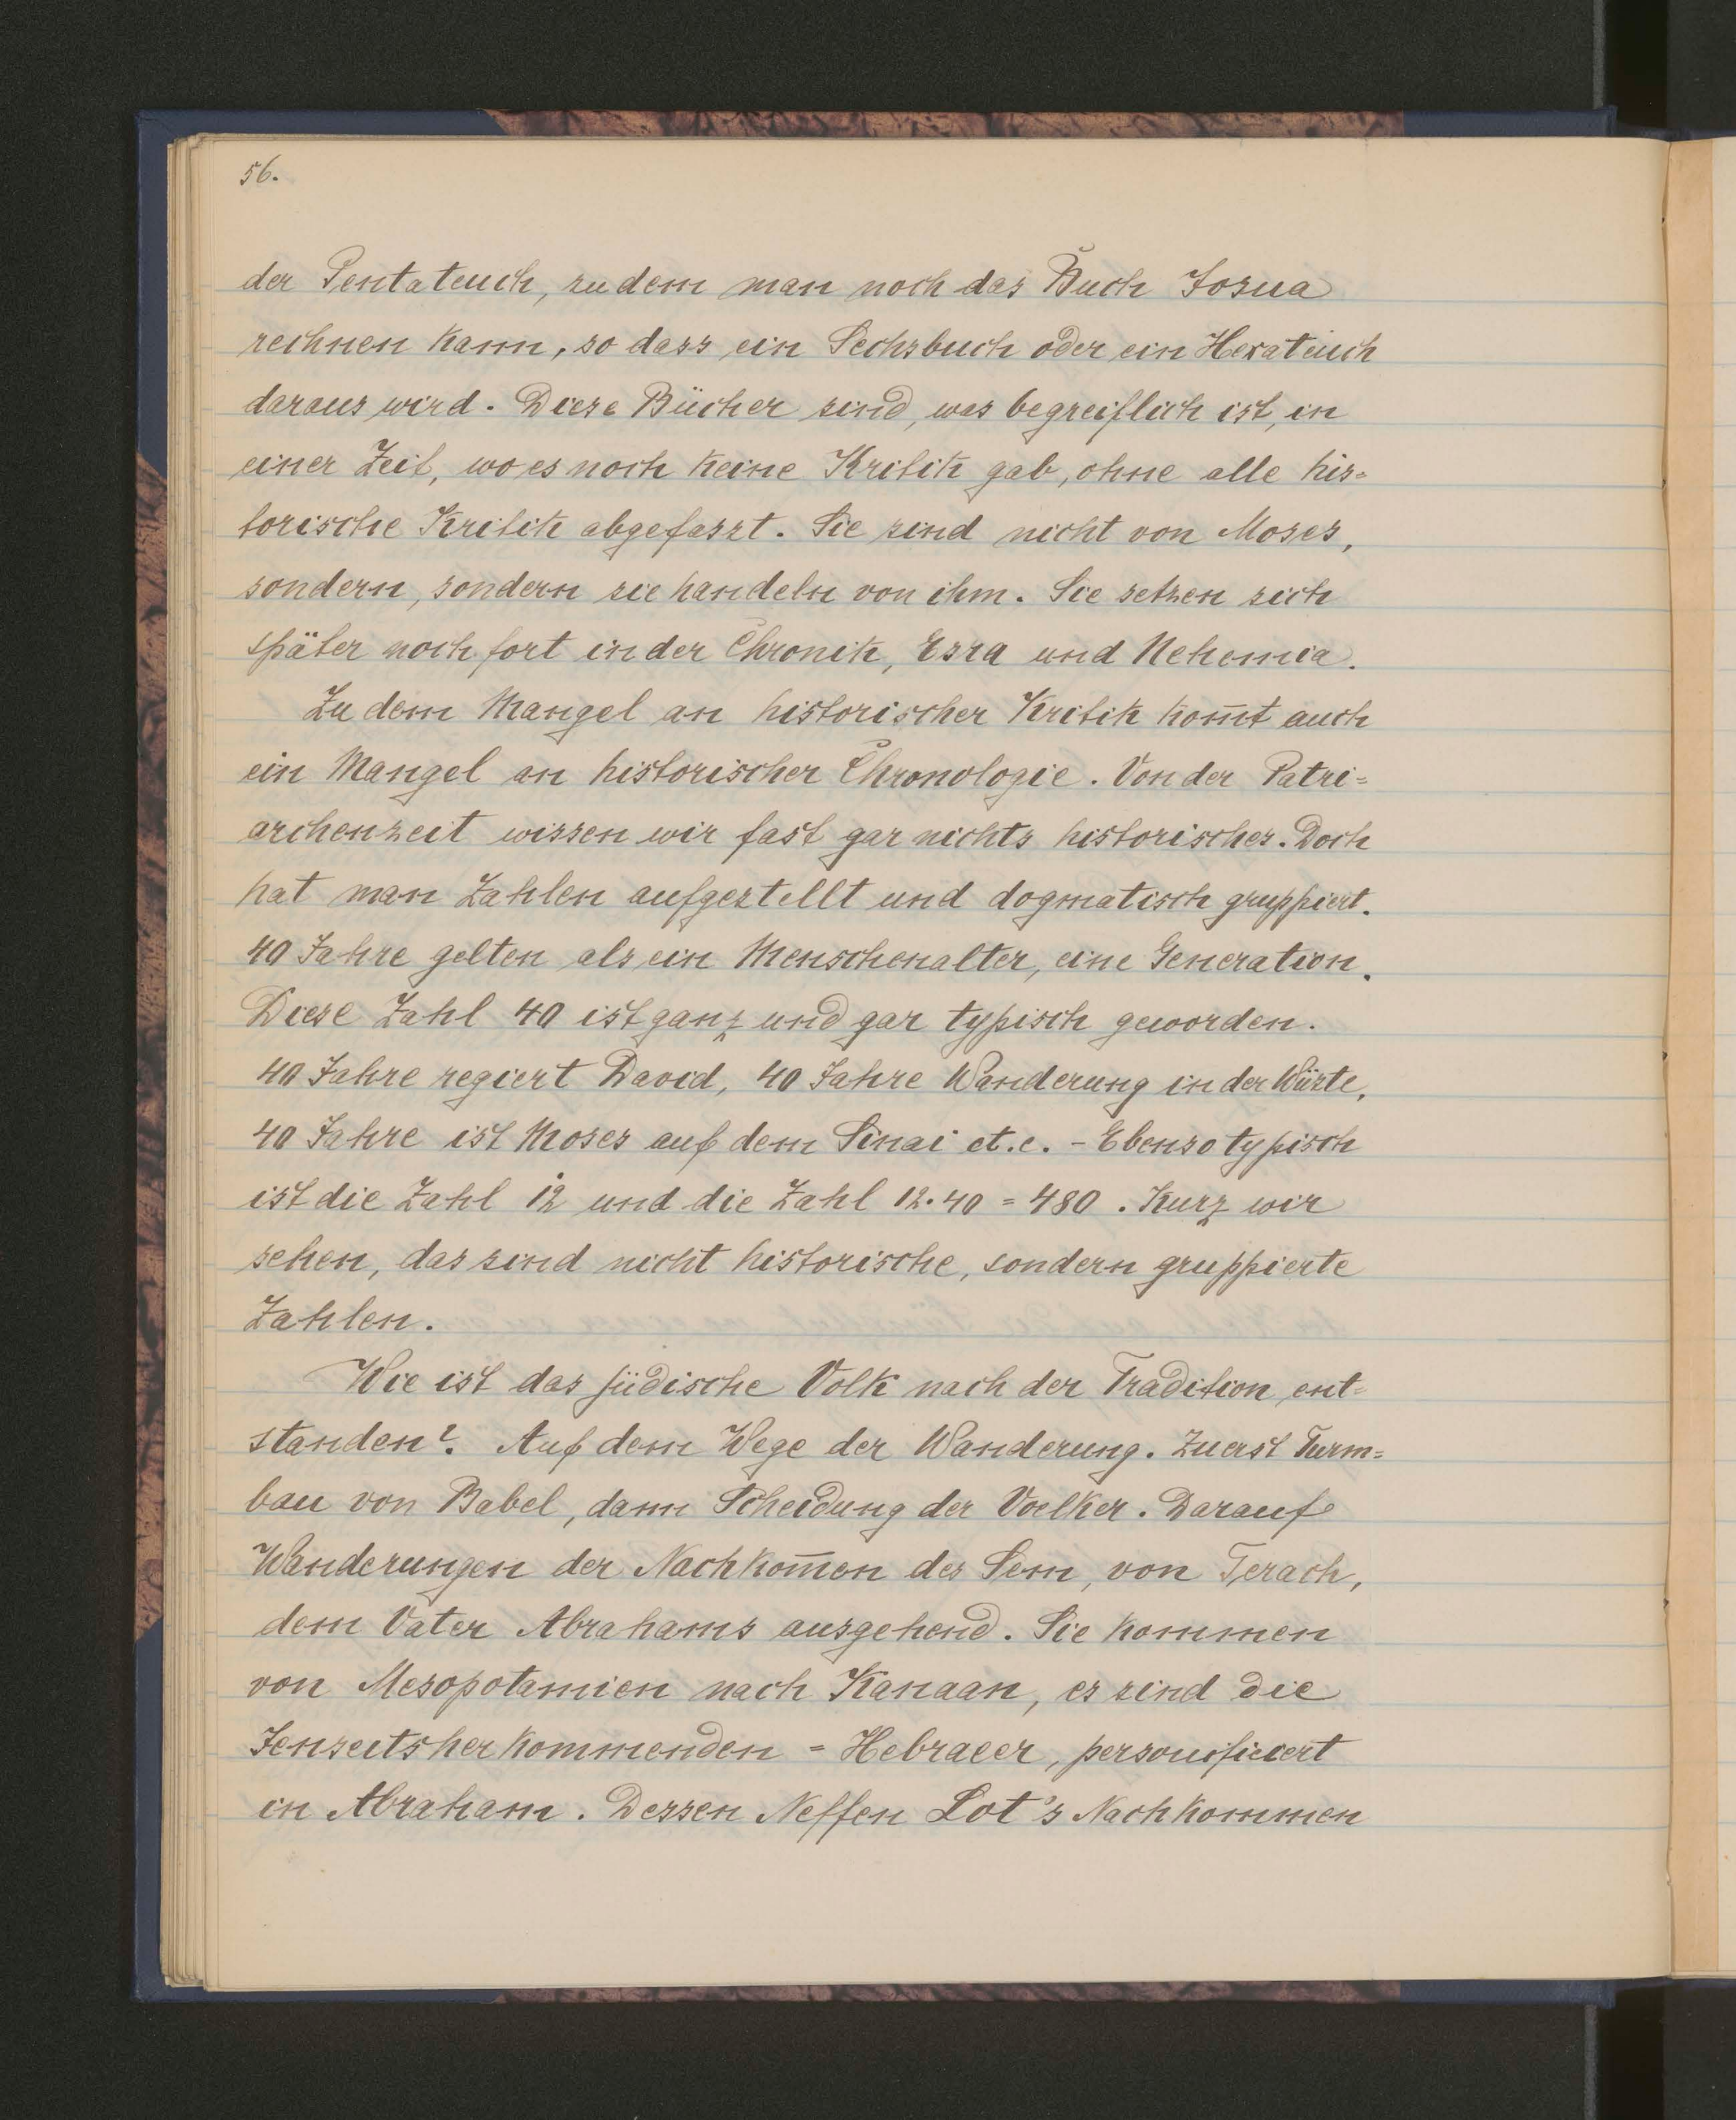 56.
der Pentateuch, zu dem man noch das Buch Josua
rechnen kann, so dass ein Sechsbuch oder ein Hexateuch
daraus wird. Diese Bücher sind, was begreiflich ist, in
einer Zeit, wo es noch keine Kritik gab, ohne alle his=
torische Kritik abgefasst. Sie sind nicht von Moses,
sondern, sondern sie handeln von ihm. Sie setzen sich
später noch fort in der Chronik, Esra und Nehemia.
Zu dem Mangel an historischer Kritik kom̄t auch
ein Mangel an historischer Chronologie. Von der Patri=
archenzeit wissen wir fast gar nichts historisches. Doch
hat man Zahlen aufgestellt und dogmatisch gruppiert.
40 Jahre gelten als ein Menschenalter, eine Generation.
Diese Zahl 40 ist ganz und gar typisch geworden.
40 Jahre regiert David, 40 Jahre Wanderung in der Wüste,
40 Jahre ist Moses auf dem Sinai et.c. - Ebenso typisch
ist die Zahl 12 und die Zahl 12·40 = 480. Kurz wir
sehen, das sind nicht historische, sondern gruppierte
Zahlen.
Wie ist das jüdische Volk nach der Tradition ent=
standen? Auf dem Wege der Wanderung. Zuerst Turm=
bau von Babel, dann Scheidung der Voelker. Darauf
Wanderungen der Nachkom̄en des Sem, von Terach,
dem Vater Abrahams ausgehend. Sie kommen
von Mesopotamien nach Kanaan, es sind die
Jenseitsherkommenden = Hebraeer, personificiert
in Abraham. Dessen Neffen Lot's Nachkommen